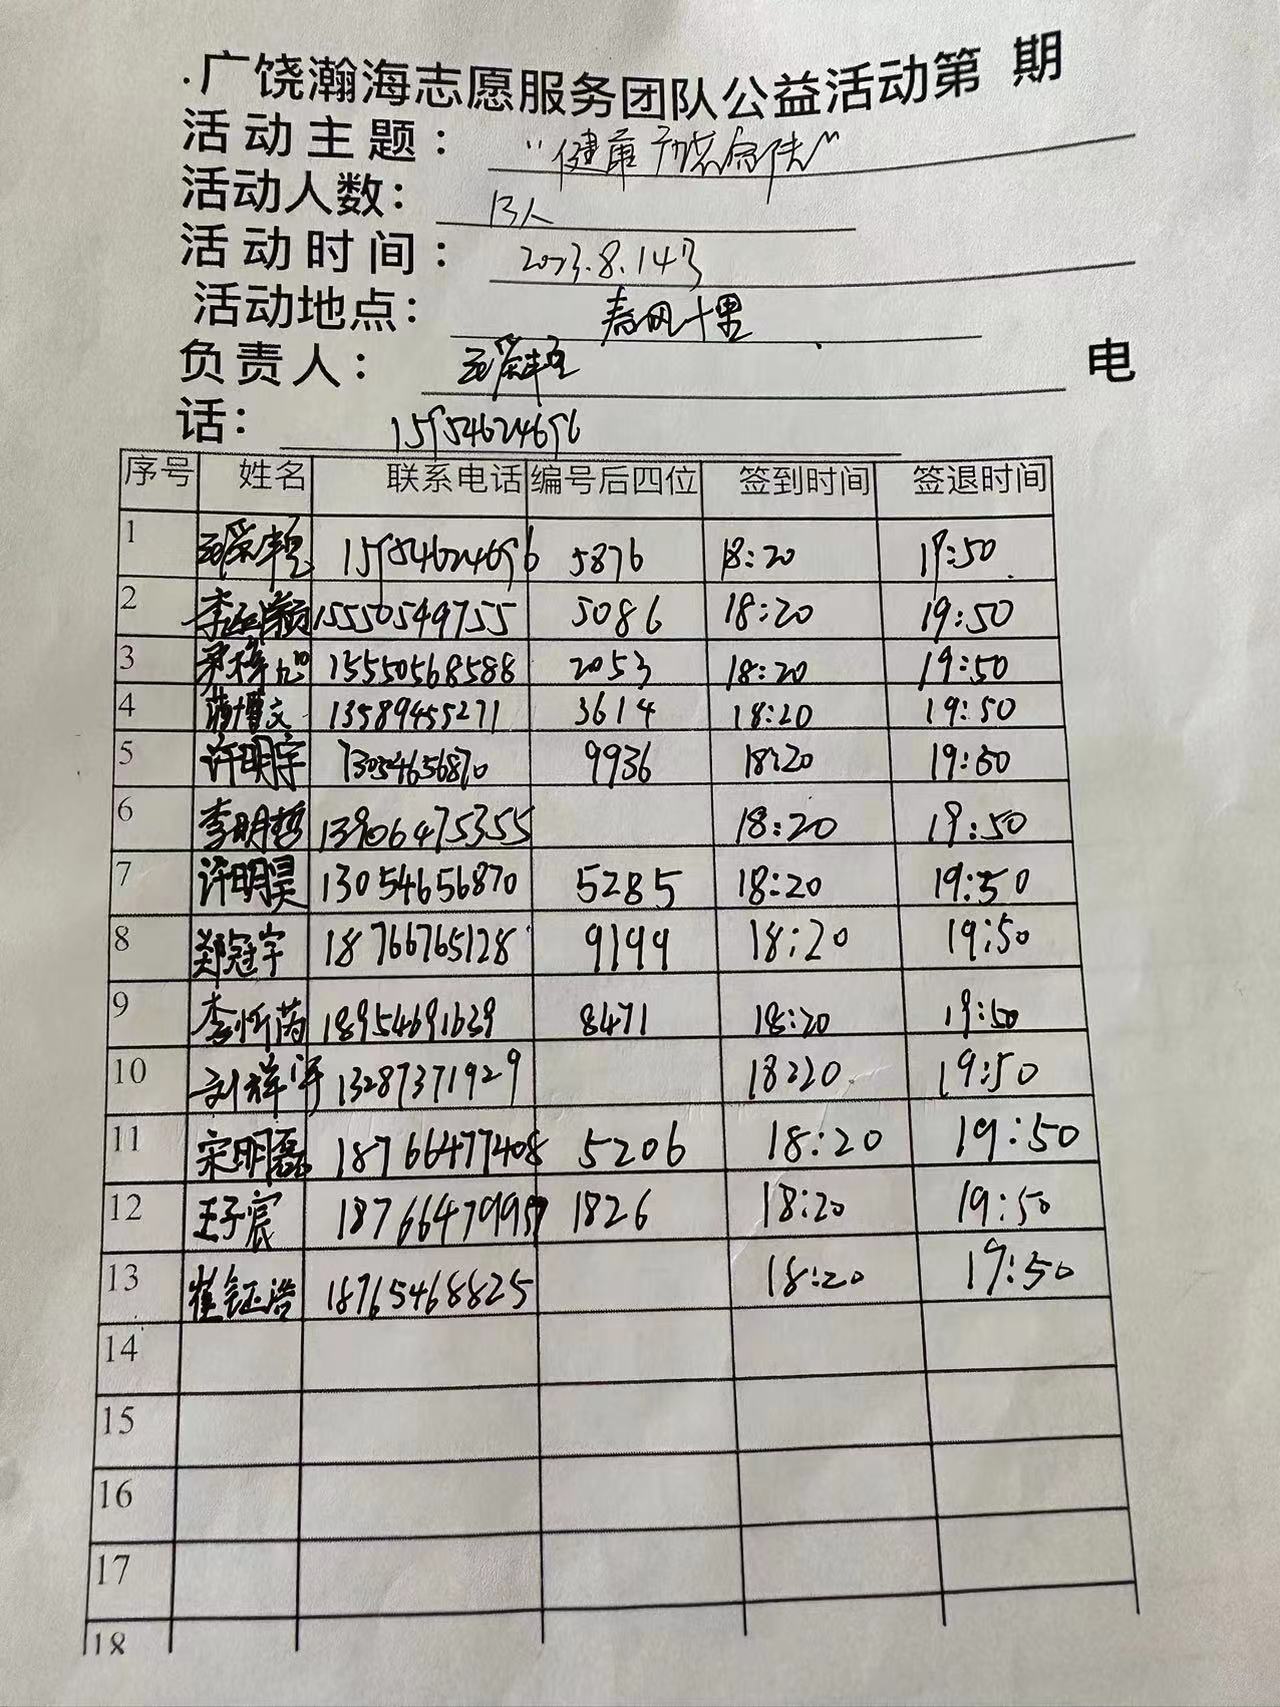 .广饶瀚海志愿服务团队公益活动第 期
活动主题： “健康
活动人数： 13人
活动时间： 2023.8.14号
活动地点： 春风十里
负责人： 电
话： 15954624696
序号 姓名 联系电话 编号后四位 签到时间 签退时间
1 15954624696 5876 18:20 19:50
2 15550549755 5086 18:20 19:50
3 15550568588 2053 18:20 19:50
4 13589455271 3614 18:20 19:50
5 许明宇 13054656870 9936 18:20 19:50
6 李明哲 13906475355 18:20 19:50
7 许明昊 13054656870 5285 18:20 19:50
8 郑冠宇 18766765128 9199 18:20 19:50
9 李忻芮 18954691639 8471 18:20 19:50
10 刘祥宇 13287371929 18:20 19:50
11 宋明磊 18766477408 5206 18:20 19:50
12 王子宸 18766479957 1826 18:20 19:50
13 崔钰浩 18765468825 18:20 19:50
14
15
16
17
18